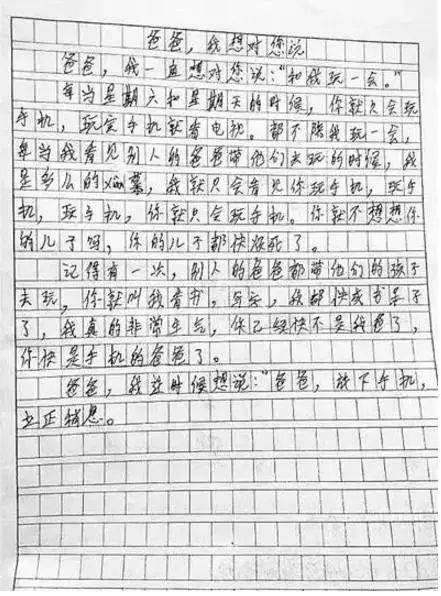 爸爸，我想对您说
爸爸，我一直想对您说：“和我玩一会。”
每当星期六和星期天的时候，你就只会玩
手机，玩完手机就看电视。都不陪我玩一会，
每当我看见别人的爸爸带他们去玩的时候，我
是多么的xian慕，我就只会看见你玩手机，玩手
机，玩手机，你就只会玩手机。你就不想想你
的儿子吗，你的儿子都快烦死了。
记得有一次，别人的爸爸都带他们的孩子
去玩，你就叫我看书。写字，我都快成书呆子
了，我真的非常生气，你已经快不是我爸了，
你快是手机的爸爸了。
爸爸，我时候想说：“爸爸，放下手机，
立正稍息。